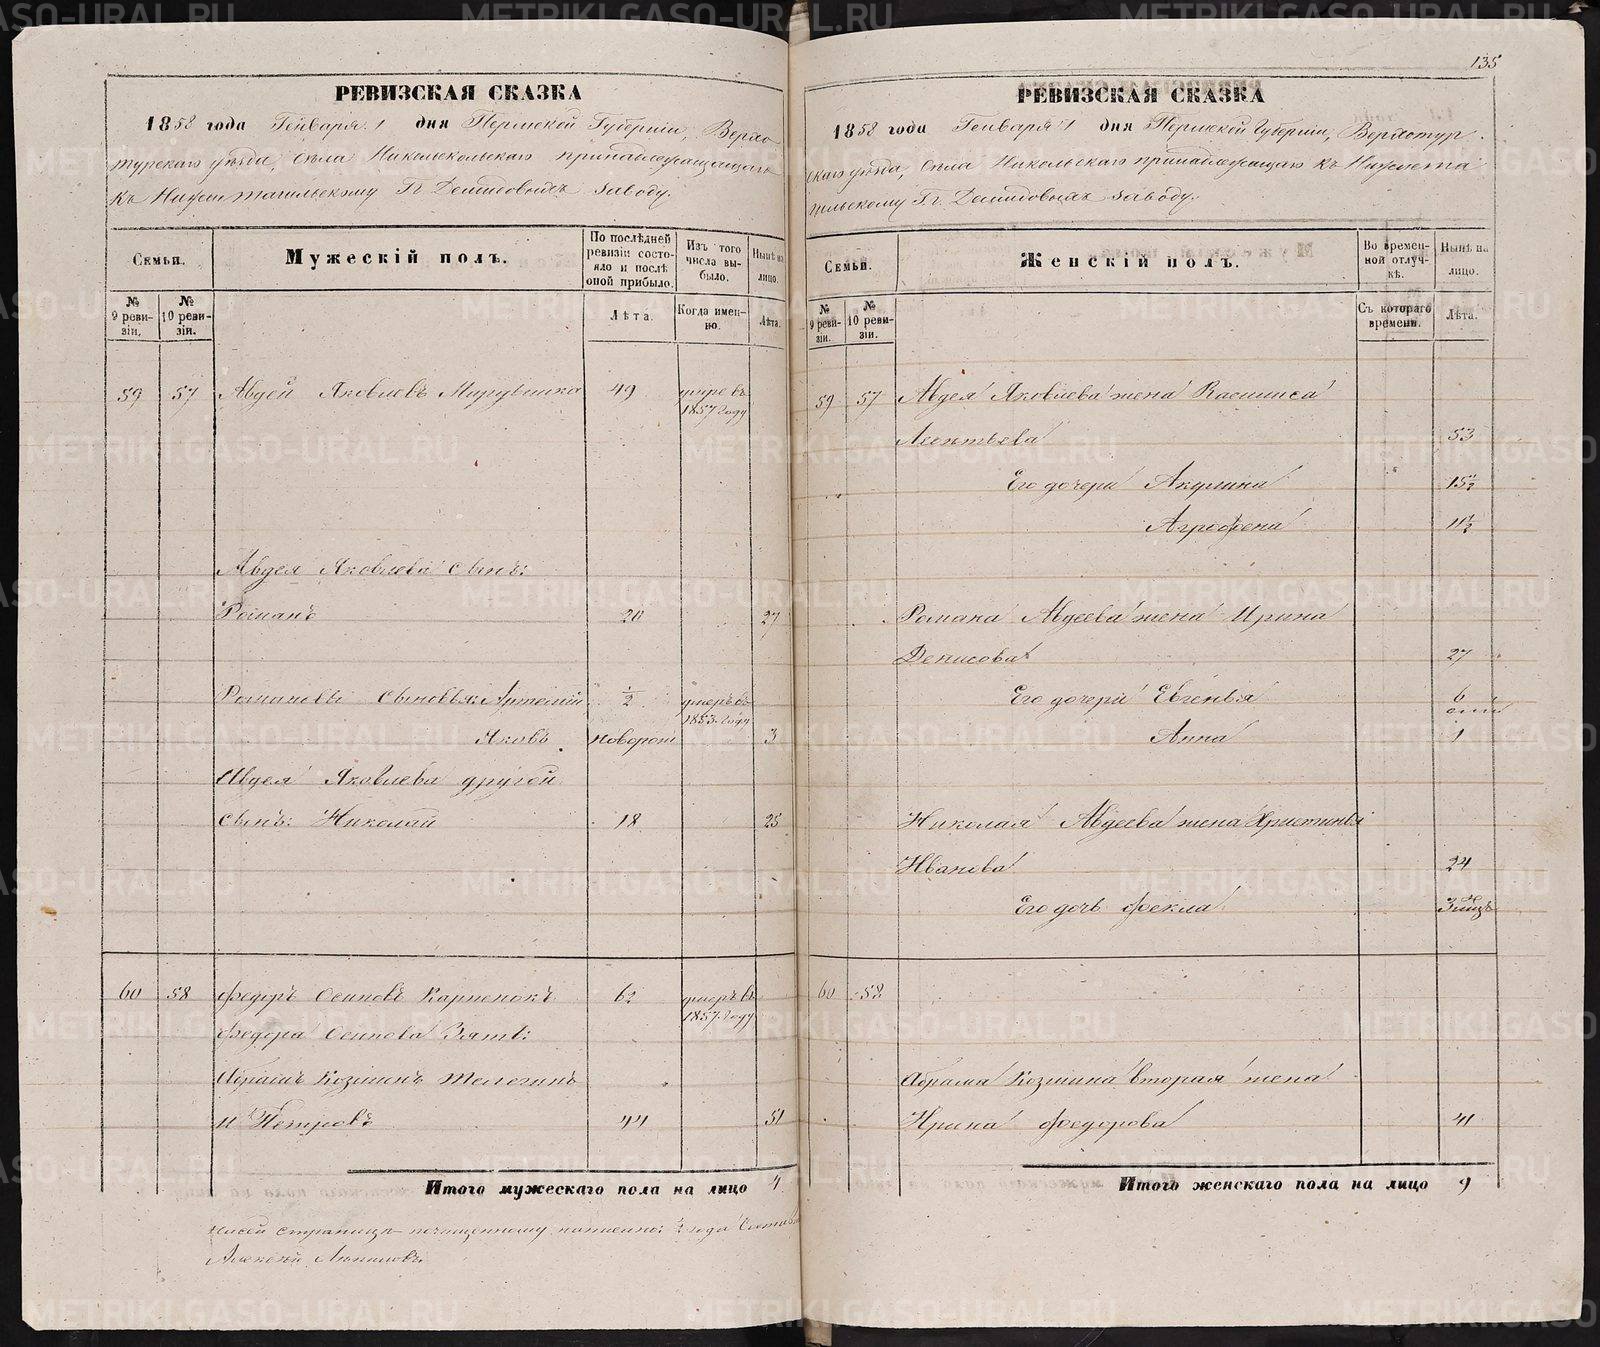 РЕВИЗСКАЯ СКАЗКА
1858 года Генваря 1 дня Пермской Губерніи, Верхо
турскаго уѣзда, села Никольскаго принадлежащаго
къ Нижнетагильскому Гг. Демидовыхъ заводу.
Семьи.
Мужескій полъ.
По послѣдней ревизіи состояло и послѣ оной прибыло.
Изъ того числа выбыло.
Нынѣ на лицо.
№ 9 ревизіи.
№ 10 ревизіи.
Лѣта.
Когда именно.
Лѣта.
59 57 Авдей Яковлевъ 49 умре въ
1857 году
Авдея Яковлева сынъ:
Романъ 20 27
Романовы сыновья: Артемій ½ умеръ въ
1853 году
Яковъ новорож 3
Авдея Яковлева другой
сынъ: Николай 18 25
60 58 Федоръ Осиповъ Карпенокъ 62 умеръ въ
1857 году
Федора Осипова Зять:
Абрамъ Козминъ Телегинъ
и Петровъ 44 51
Итого мужескаго пола на лицо 4
страницѣ почищенному написано: года
Алексѣй
135
РЕВИЗСКАЯ СКАЗКА
1858 года Генваря 1 дня Пермской Губерніи, Верхотур
скаго уѣзда, села Никольскаго принадлежащаго къ Нижнета
гильскому Гг. Демидовыхъ заводу.
Семьи.
Женскій полъ.
Во временной отлучкѣ.
Нынѣ на лицо.
№ 9 ревизіи.
№ 10 ревизіи.
Съ котораго времени.
Лѣта.
59 57 Авдея Яковлева жена
Леонтьева 53
Его дочери Акулина 15½
Агрофена 11½
Романа Авдеева жена Ирина
Денисова 27
Его дочери Евгенья 6
Анна 1
Николая Авдеева жена Христинья
Иванова 24
Его дочь Фекла 3 мцъ
60 58
Абрама Козмина вторая жена
Ирина Федорова 41
Итого женскаго пола на лицо 9
METRIKI.GASO-URAL.RU